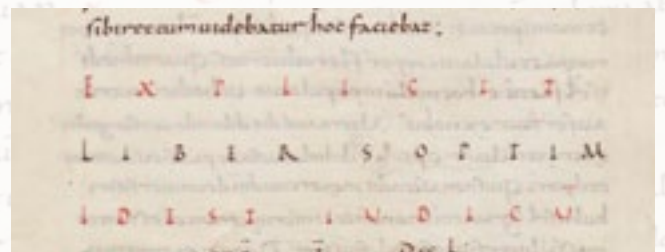 sibi rectum uidebatur hoc faciebat;
E X P L I C I T
L I B E R S O P T I M
I D E S T I U D I C U